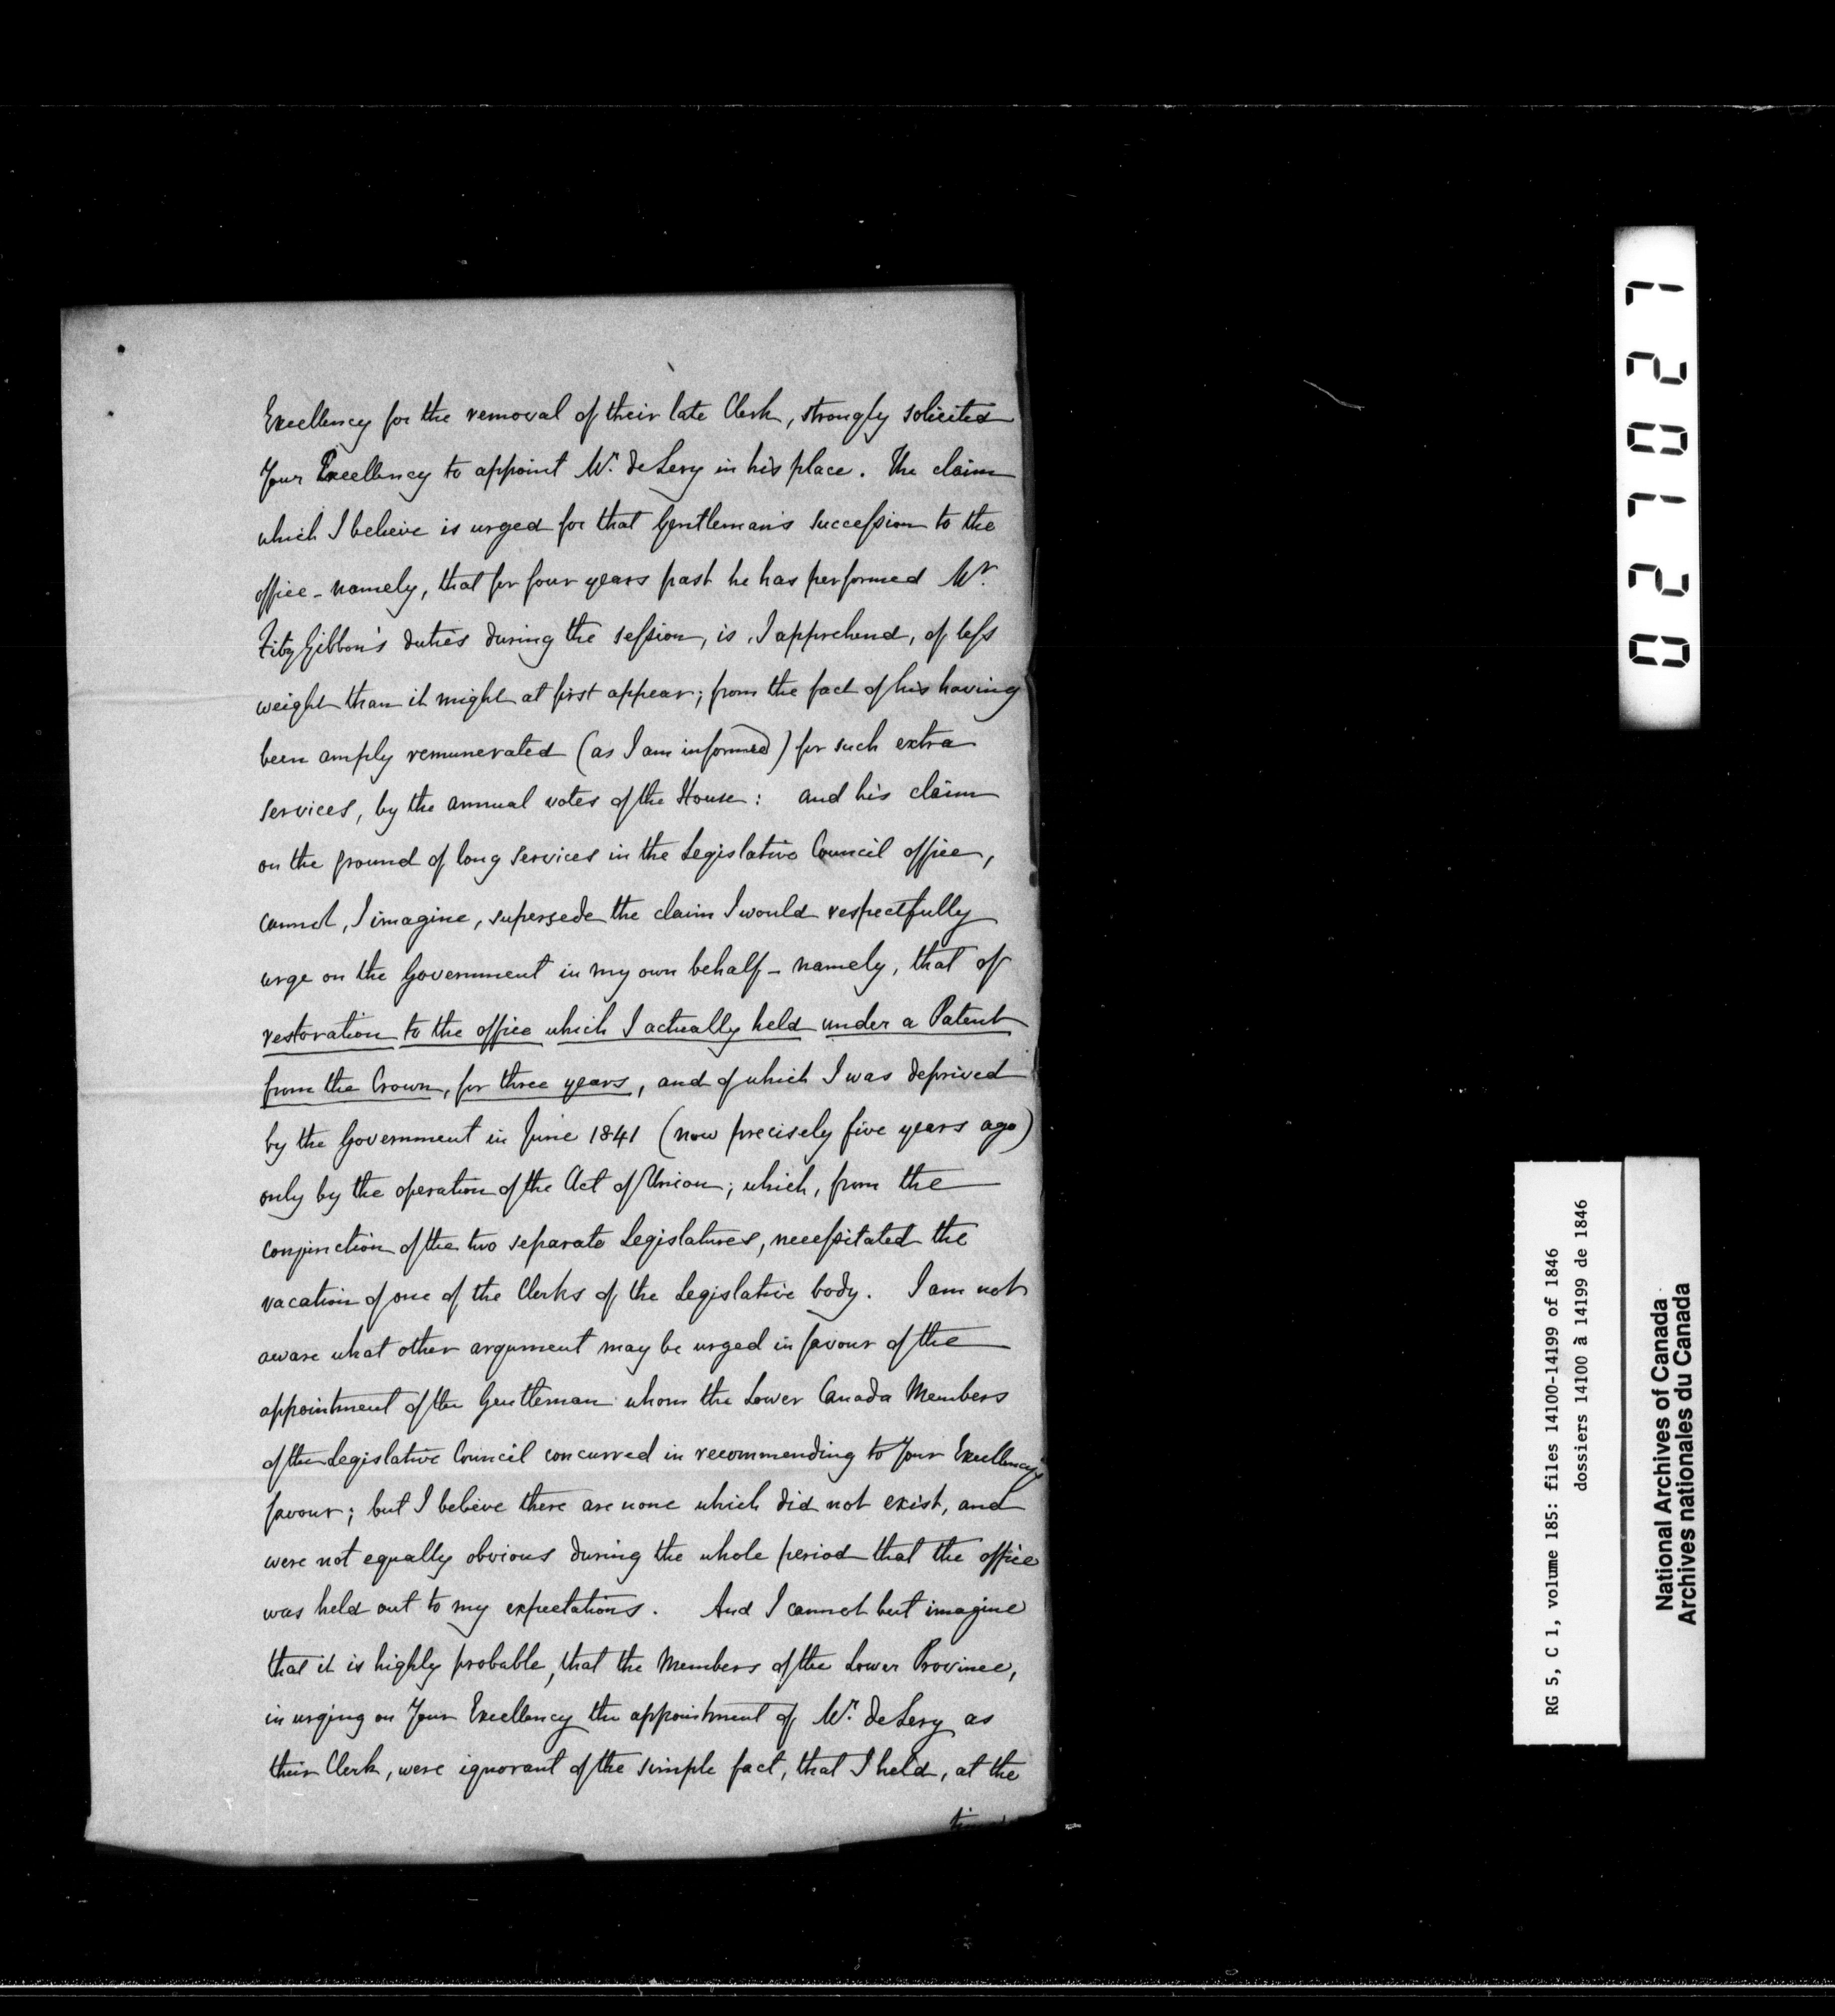 Excellency for the removal of their late Clerk, strongly solicited
Your Excellency to appoint Mr. de Lery in his place. The claim
which I believe is urged for that Gentleman's succession to the
office – namely, that for four years past he has performed Mr.
FitzGibbon's duties during the session, is, I apprehend, of less
weight than it might at first appear; from the fact of his having
been amply remunerated (as I am informed) for such extra
services, by the annual votes of the House: and his claim
on the ground of long services in the Legislative Council office,
cannot, I imagine, supersede the claim I would respectfully
urge on the Government in my own behalf – namely, that of
restoration to the office which I actually held under a Patent
from the Crown, for three years, and of which I was deprived
by the Government in June 1841 (now precisely five years ago)
only by the operation of the Act of Union; which, from the
conjunction of the two separate Legislatures, necessitated the
vacation of one of the Clerks of the Legislative body. I am not
aware what other argument may be urged in favour of the
appointment of the Gentleman whom the Lower Canada Members
of the Legislative Council concurred in recommending to Your Excellency's
favour; but I believe there are none which did not exist, and
were not equally obvious during the whole period that the office
was held out to my expectations. And I cannot but imagine
that it is highly probable, that the Members of the Lower Province,
in urging on Your Excellency the appointment of Mr. de Lery as
their Clerk, were ignorant of the simple fact, that I held, at the
027027
RG 5, C 1, volume 185: files 14100-14199 of 1846
dossiers 14100 à 14199 de 1846
National Archives of Canada
Archives nationales du Canada